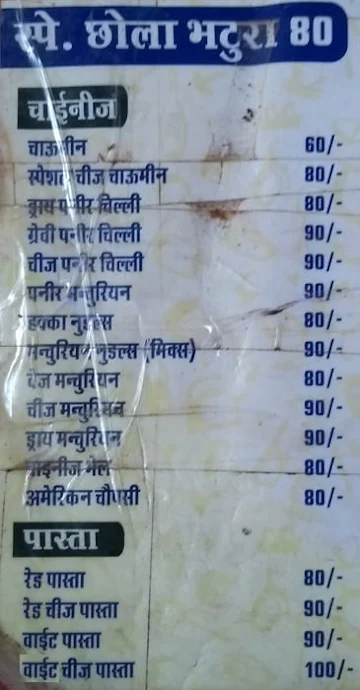 स्पे. छोला भटुरा 80
चाईनीज
चाऊमीन 60/-
स्पेशल चीज चाऊमीन 80/-
ड्राय पनीर चिल्ली 80/-
ग्रेवी पनीर चिल्ली 90/-
चीज पनीर चिल्ली 90/-
पनीर मन्चुरियन 90/-
हक्का नुडल्स 80/-
मन्चुरियन नुडल्स (मिक्स) 90/-
वेज मन्चुरियन 80/-
चीज मन्चुरियन 90/-
ड्राय मन्चुरियन 90/-
चाइनीज भेल 80/-
अमेरिकन चौपसी 80/-
पास्ता
रेड पास्ता 80/-
रेड चीज पास्ता 90/-
वाईट पास्ता 90/-
वाईट चीज पास्ता 100/-